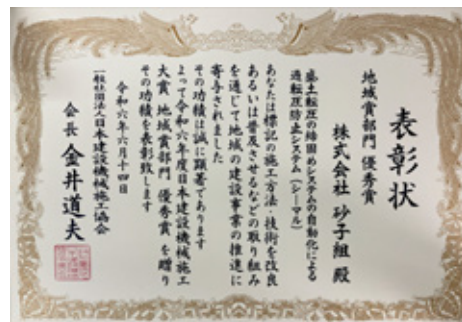 表彰状
地域賞部門 優秀賞
株式会社 砂子組 殿
盛土転圧の締固めシステムの自動化による
過転圧防止システム（シーマル）
あなたは標記の施工方法・技術を改良
あるいは普及させるなどの取り組み
を通じて地域の建設事業の推進に
寄与されました
その功績は誠に顕著であります
よって令和六年度日本建設機械施工
大賞 地域賞部門 優秀賞 を贈り
その功績を表彰致します
令和六年六月十四日
一般社団法人日本建設機械施工協会
会長 金井道夫